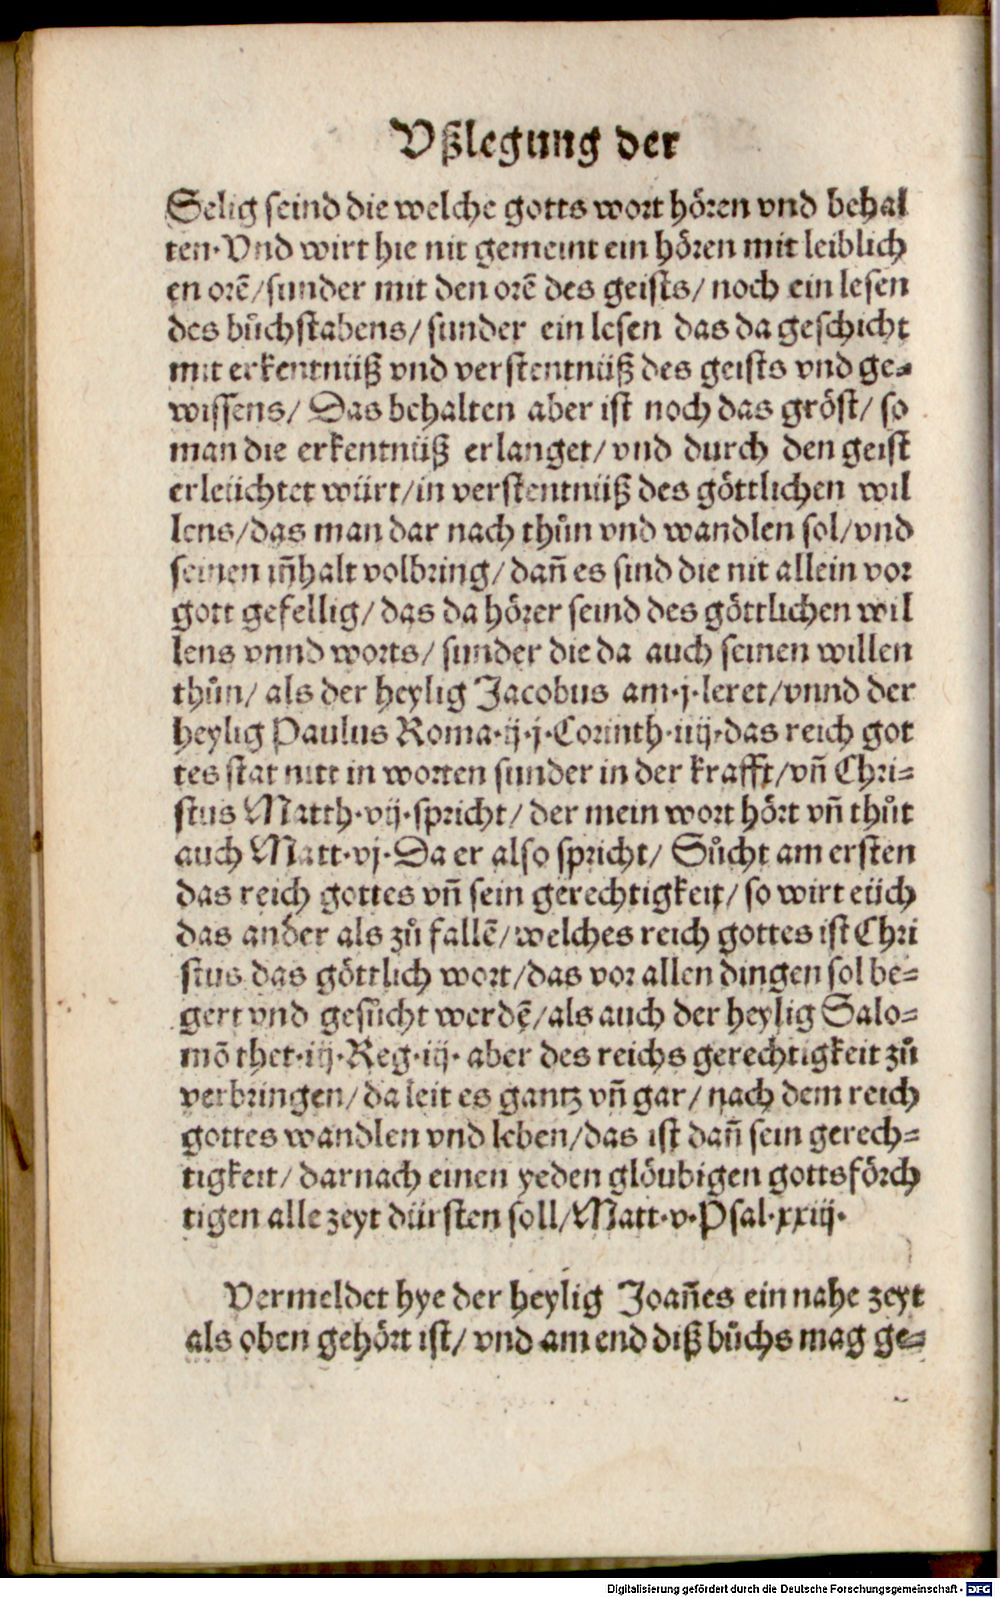 Vßlegung der
Selig seind die welche gotts wort hören vnd behal
ten·Vnd wirt hie nit gemeint ein hören mit leiblich
en orē/sunder mit den orē des geists/noch ein lesen
des bůchstabens/sunder ein lesen das da geschicht
mit erkentnüß vnd verstentnüß des geists vnd ge⸗
wissens/ Das behalten aber ist noch das gröst/ so
man die erkentnüß erlanget/vnd durch den geist
erleüchtet würt/in verstentnüß des göttlichen wil
lens/das man dar nach thůn vnd wandlen sol/vnd
seinen iñhalt volbring/dañ es sind die nit allein vor
gott gefellig/das da hörer seind des göttlichen wil
lens vnnd worts/ sunder die da auch seinen willen
thůn/ als der heylig Jacobus am·j·leret/vnnd der
heylig Paulus Roma·ij·j·Corinth·iiij·das reich got
tes stat nitt in worten sunder in der krafft/vñ Chri⸗
stus Matth·vij·spricht/ der mein wort hört vñ thůt
auch Matt·vj·Da er also spricht/ Sůcht am ersten
das reich gottes vñ sein gerechtigkeit/so wirt eüch
das ander als zů fallē/welches reich gottes ist Chri
stus das göttlich wort/das vor allen dingen sol be⸗
gert vnd gesůcht werdē/als auch der heylig Salo⸗
mō thet·iij·Reg·iij· aber des reichs gerechtigkeit zů
verbringen/da leit es gantz vñ gar/nach dem reich
gottes wandlen vnd leben/das ist dañ sein gerech⸗
tigkeit/darnach einen yeden glöubigen gottsförch
tigen alle zeyt dürsten soll/Matt·v·Psal·xxiij·
Vermeldet hye der heylig Joañes ein nahe zeyt
als oben gehört ist/ vnd am end diß bůchs mag ge⸗
Digitalisierung gefördert durch die Deutsche Forschungsgemeinschaft - DFG